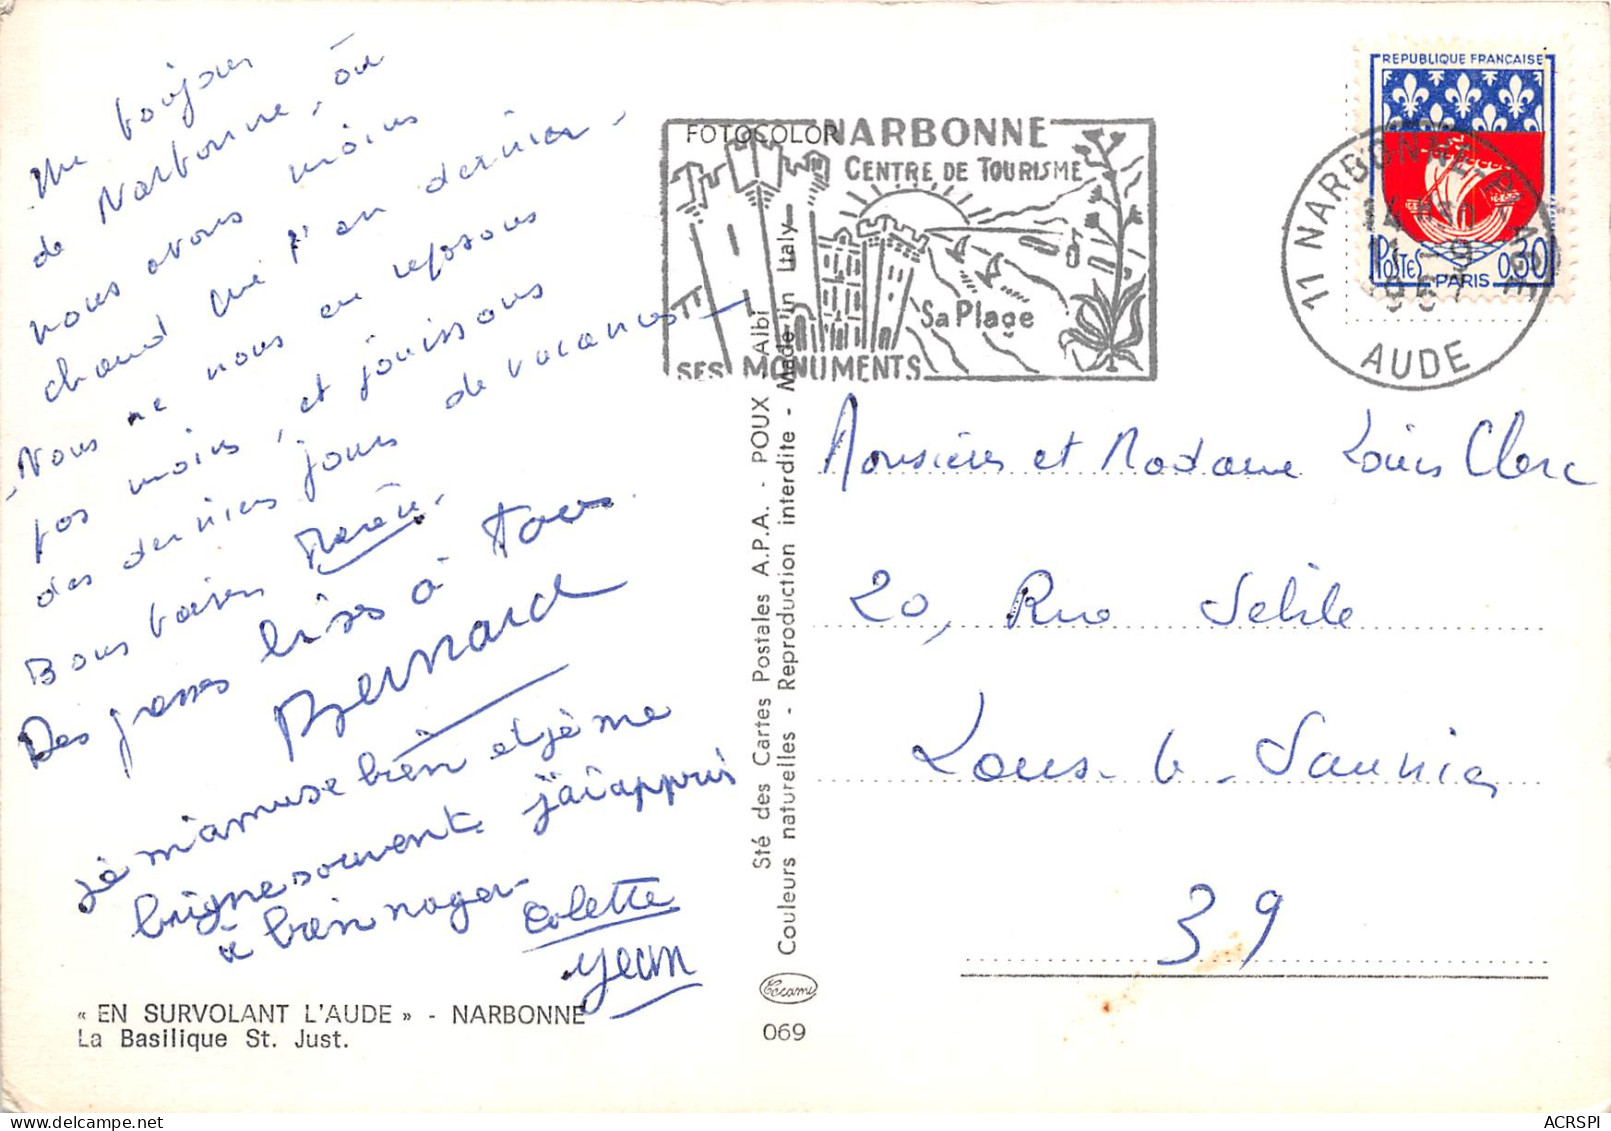 Un toujours
de Narbonne, où
nous avons moins
chaud que l'an dernier -
Nous ne nous en reposons
pas moins, et jouissons
des derniers jours de vacances -
Bons baisers
Des grosses bises à tous.
Bernard
je m'amuse bien et je me
baigne souvent. j'ai appris
à bien nager -
Colette
Jean
« EN SURVOLANT L'AUDE » - NARBONNE
La Basilique St. Just.
Sté des Cartes Postales A.P.A. - POUX - Albi
Couleurs naturelles - Reproduction interdite - Made in Italy
069
FOTOCOLOR
NARBONNE
CENTRE DE TOURISME
Sa Plage
SES MONUMENTS
REPUBLIQUE FRANÇAISE
POSTES PARIS 0,30
11 NARBONNE
AUDE
Monsieur et Madame Louis Clerc
20, Rue Sebile
Lons-le-Saunier
39
ACRSPI